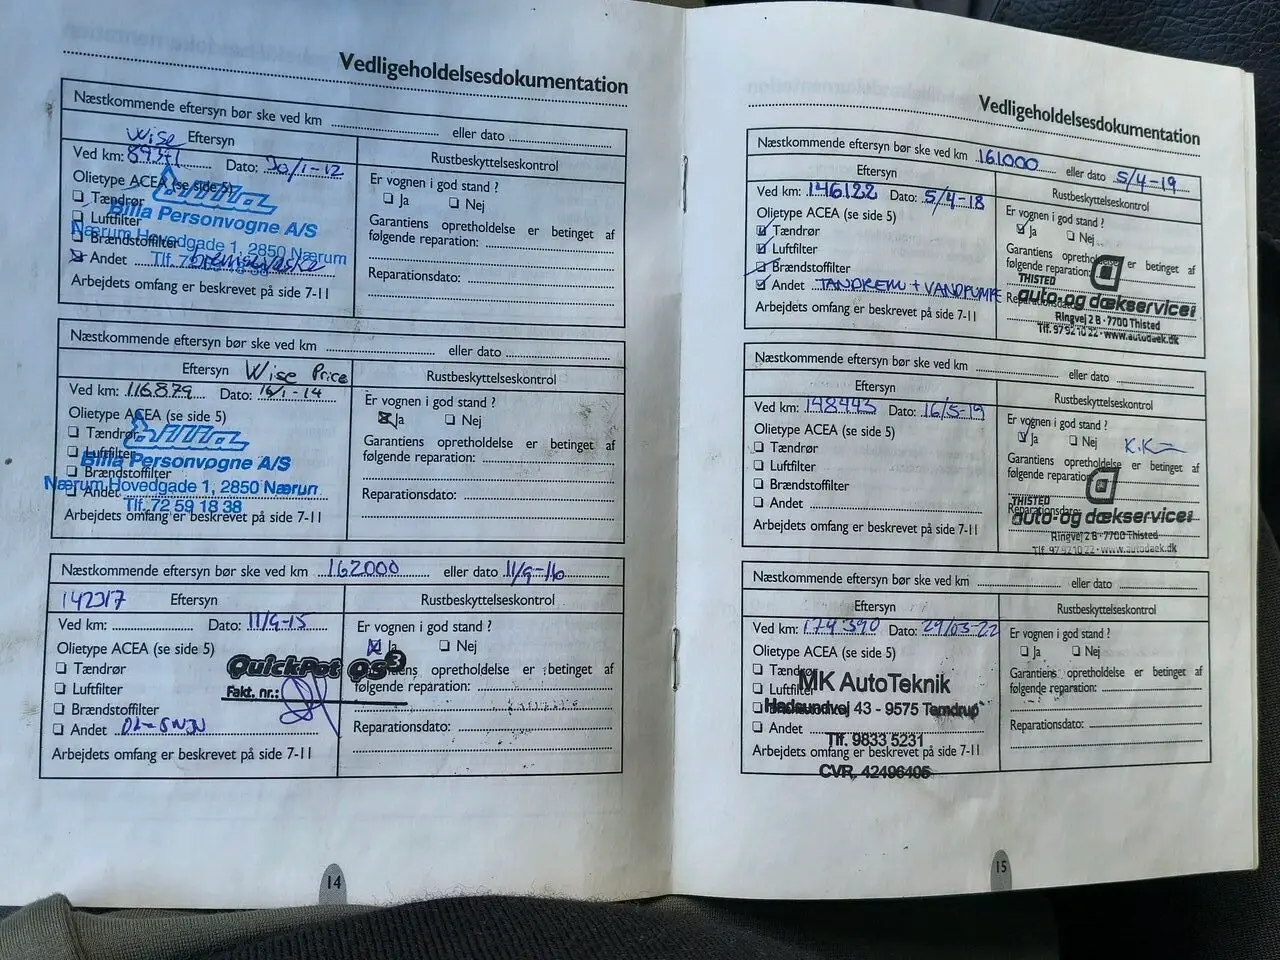 Vedligeholdelsesdokumentation
Næstkommende eftersyn bør ske ved km ........ eller dato ........
Wise Eftersyn
Ved km: 89341 Dato: 30/1-12
Olietype ACEA (se side 5)
Tændrør
Luftfilter
Brændstoffilter
Andet bremsevæske
Arbejdets omfang er beskrevet på side 7-11
Billia Personvogne A/S
Nærum Hovedgade 1, 2850 Nærum
Rustbeskyttelseskontrol
Er vognen i god stand ?
Ja Nej
Garantiens opretholdelse er betinget af
følgende reparation:
Reparationsdato:
Næstkommende eftersyn bør ske ved km ........ eller dato ........
Eftersyn Wise Price
Ved km: 116.879 Dato: 16/1-14
Olietype ACEA (se side 5)
Tændrør
Luftfilter
Brændstoffilter
Andet
Arbejdets omfang er beskrevet på side 7-11
Billia
Billia Personvogne A/S
Nærum Hovedgade 1, 2850 Nærum
Tlf. 72 59 18 38
Rustbeskyttelseskontrol
Er vognen i god stand ?
Ja Nej
Garantiens opretholdelse er betinget af
følgende reparation:
Reparationsdato:
Næstkommende eftersyn bør ske ved km 162000 eller dato 11/9-16
142317 Eftersyn
Ved km: ........ Dato: 11/9-15
Olietype ACEA (se side 5)
Tændrør
Luftfilter
Brændstoffilter
Andet
Arbejdets omfang er beskrevet på side 7-11
QuickPot QS3
Fakt. nr.:
Rustbeskyttelseskontrol
Er vognen i god stand ?
Ja Nej
Garantiens opretholdelse er betinget af
følgende reparation:
Reparationsdato:
14
Vedligeholdelsesdokumentation
Næstkommende eftersyn bør ske ved km 161000 eller dato 5/4-19
Eftersyn
Ved km: 146.122 Dato: 5/4-18
Olietype ACEA (se side 5)
Tændrør
Luftfilter
Brændstoffilter
Andet TANDREM + VANDPUMPE
Arbejdets omfang er beskrevet på side 7-11
Rustbeskyttelseskontrol
Er vognen i god stand ?
Ja Nej
Garantiens opretholdelse er betinget af
følgende reparation:
THISTED
auto-og dækservice
Ringvej 2 B · 7700 Thisted
Tlf. 97 92 10 22 · www.autodaek.dk
Næstkommende eftersyn bør ske ved km ........ eller dato ........
Eftersyn
Ved km: 148443 Dato: 16/5-19
Olietype ACEA (se side 5)
Tændrør
Luftfilter
Brændstoffilter
Andet
Arbejdets omfang er beskrevet på side 7-11
Rustbeskyttelseskontrol
Er vognen i god stand ?
Ja Nej K.K
Garantiens opretholdelse er betinget af
følgende reparation
THISTED
auto-og dækservice
Ringvej 2 B · 7700 Thisted
Tlf. 97 92 10 22 · www.autodaek.dk
Næstkommende eftersyn bør ske ved km ........ eller dato ........
Eftersyn
Ved km: 174 390 Dato: 29/03-22
Olietype ACEA (se side 5)
Tændrør
Luftfilter
Andet
MK AutoTeknik
Hadsundvej 43 - 9575 Terndrup
Tlf. 9833 5231
Arbejdets omfang er beskrevet på side 7-11
CVR. 42496405
Rustbeskyttelseskontrol
Er vognen i god stand ?
Ja Nej
Garantiens opretholdelse er betinget af
følgende reparation:
Reparationsdato:
15